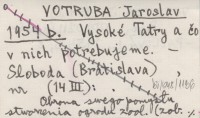 VOTRUBA Jaroslav
1954 b. Vysoké Tatry a čo
v nich potrebujeme. –
Sloboda (Bratislava),
nr (14 III): .
Obrona swego pomysłu
stworzenia ogrodu zool. (zob.